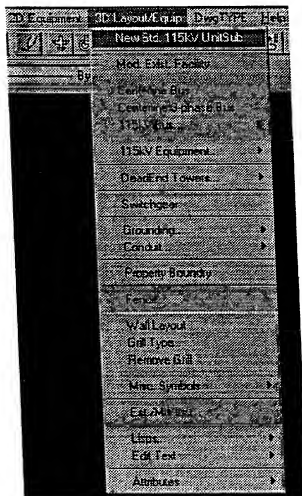 2D Equipment 3D Layout/Equip. Help
By
New Std. 115kV UnitSub
Mod. Exist. Facility
Centerline Bus
Centerline 3-phase Bus
115kV Bus
115kV Equipment
DeadEnd Towers
Switchgear
Grounding...
Conduit
Property Boundry
Fence
Wall Layout
Grill Type
Remove Grill
Misc. Symbols
Edit Text
Attributes